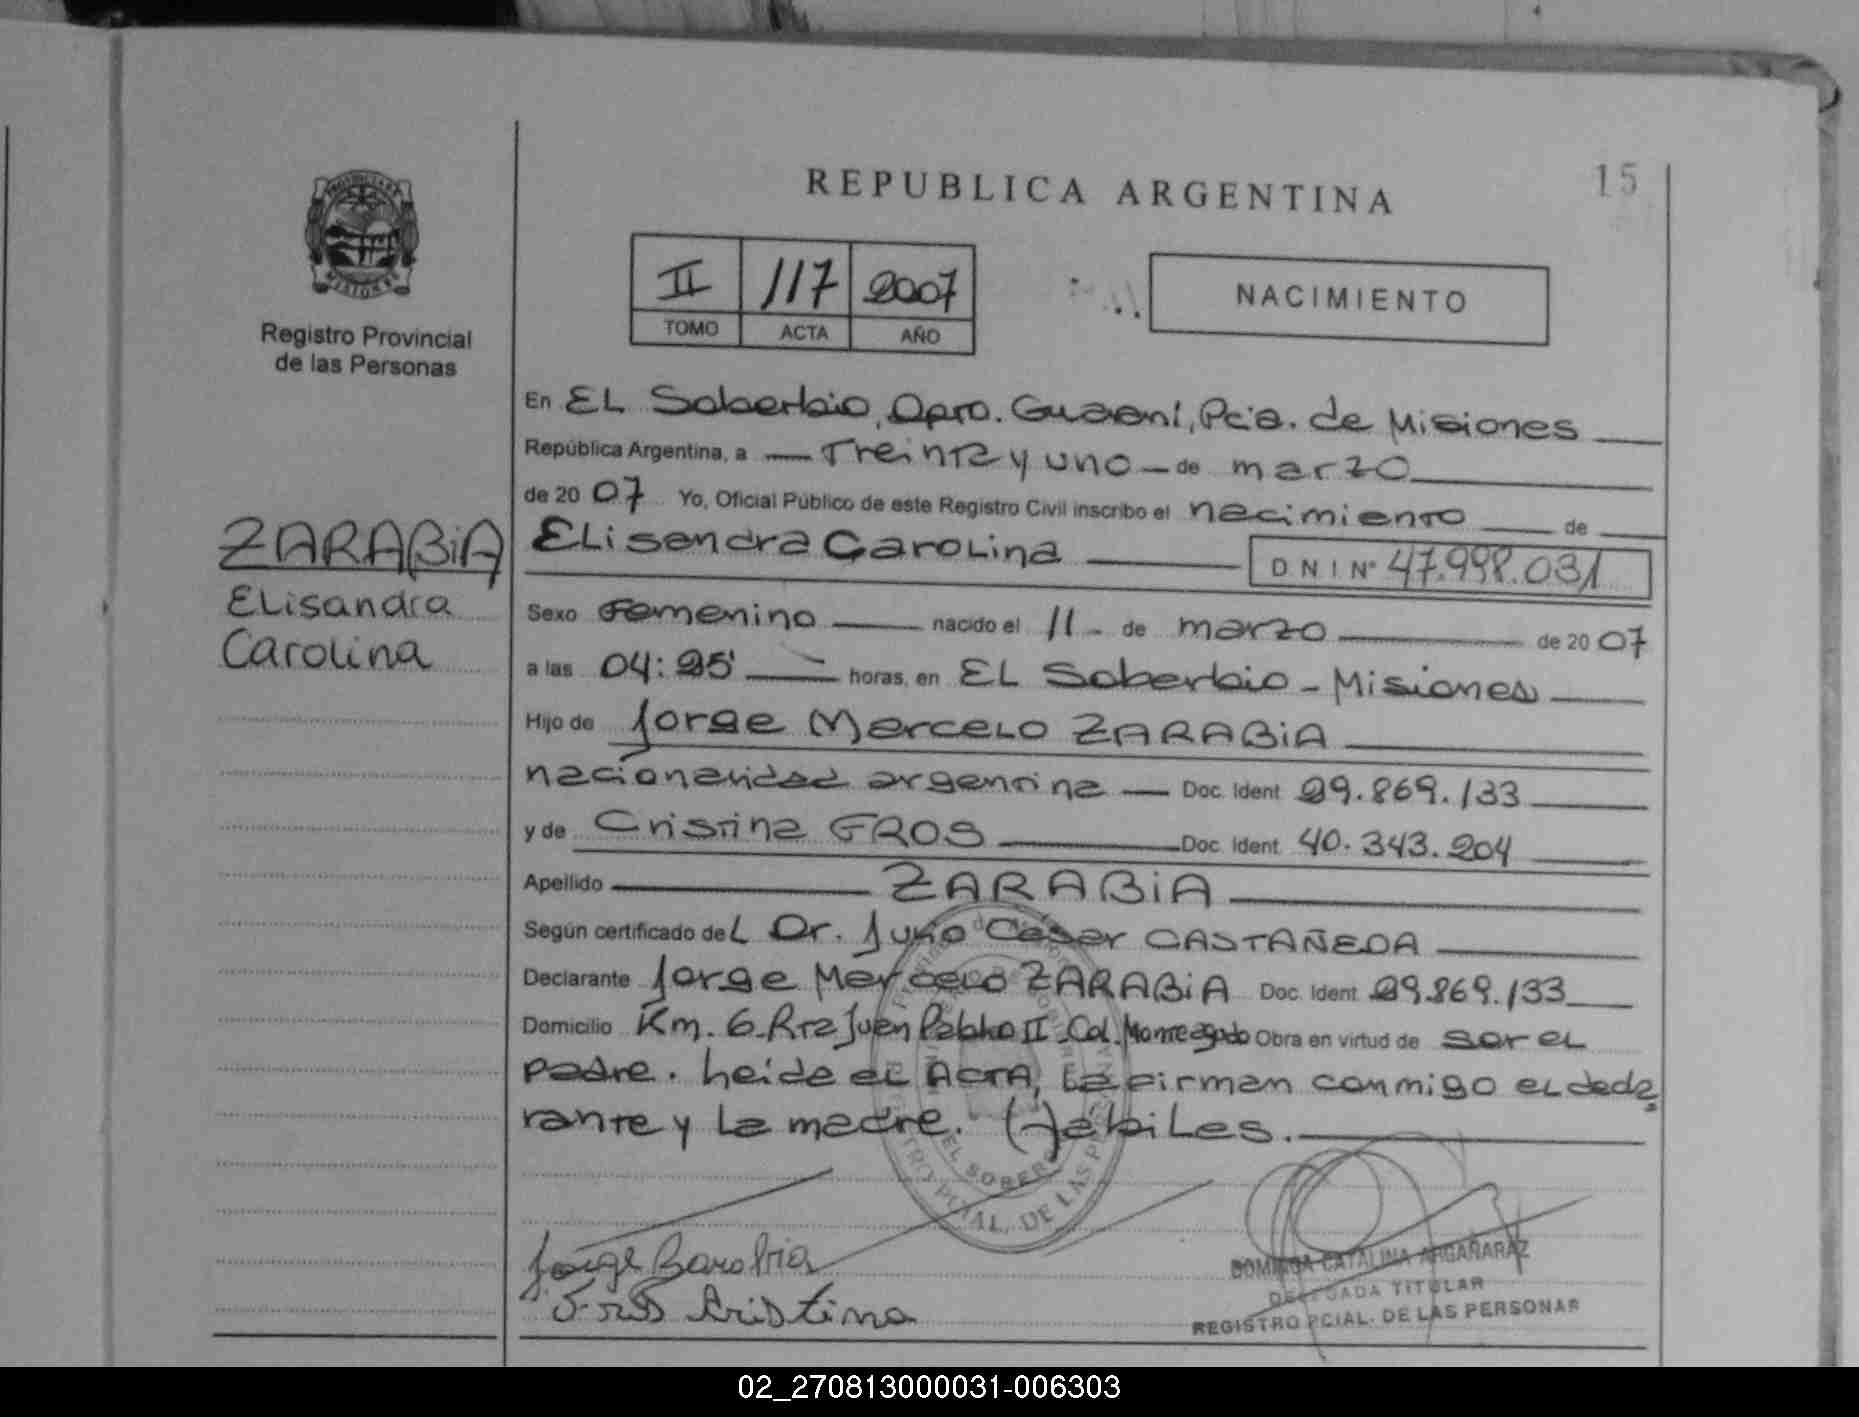 REPUBLICA ARGENTINA
15
PROVINCIA DE
MISIONES
Registro Provincial
de las Personas
II 117 2007
TOMO ACTA AÑO
NACIMIENTO
ZARABIA
Elisandra
Carolina
En EL Soberbio, Dpto. Guaraní, Pcia. de Misiones
República Argentina, a Treinta y uno de marzo
de 2007 Yo, Oficial Público de este Registro Civil inscribo el nacimiento de
Elisandra Carolina DNI Nº 47.998.031
Sexo Femenino nacido el 11 - de marzo de 2007
a las 04:25' horas, en EL Soberbio - Misiones
Hijo de Jorge Marcelo ZARABIA
nacionalidad argentina Doc. Ident. 29.869.133
y de Cristina GROS Doc. Ident. 40.343.204
Apellido ZARABIA
Según certificado del Dr. Julio Cesar CASTAÑEDA
Declarante Jorge Marcelo ZARABIA Doc. Ident. 29.869.133
Domicilio Km. 6 Rta Juan Pablo II - Col. Monteagudo Obra en virtud de ser el
padre. Leída el ACTA, la firman conmigo el decla
rante y la madre. Hábiles.
EL SOBERBIO
DE LAS
Jorge
Cristina
DOMINGA CATALINA ARGAÑARAZ
DELEGADA TITULAR
REGISTRO PCIAL. DE LAS PERSONAS
02_270813000031-006303